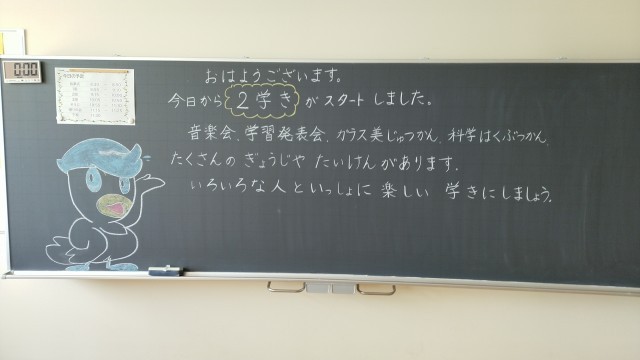 0:00
おはようございます。
今日から２学きがスタートしました。
音楽会、学習発表会、ガラス美じゅつかん、科学はくぶつかん、
たくさんのぎょうじやたいけんがあります。
いろいろな人といっしょに楽しい学きにしましょう。